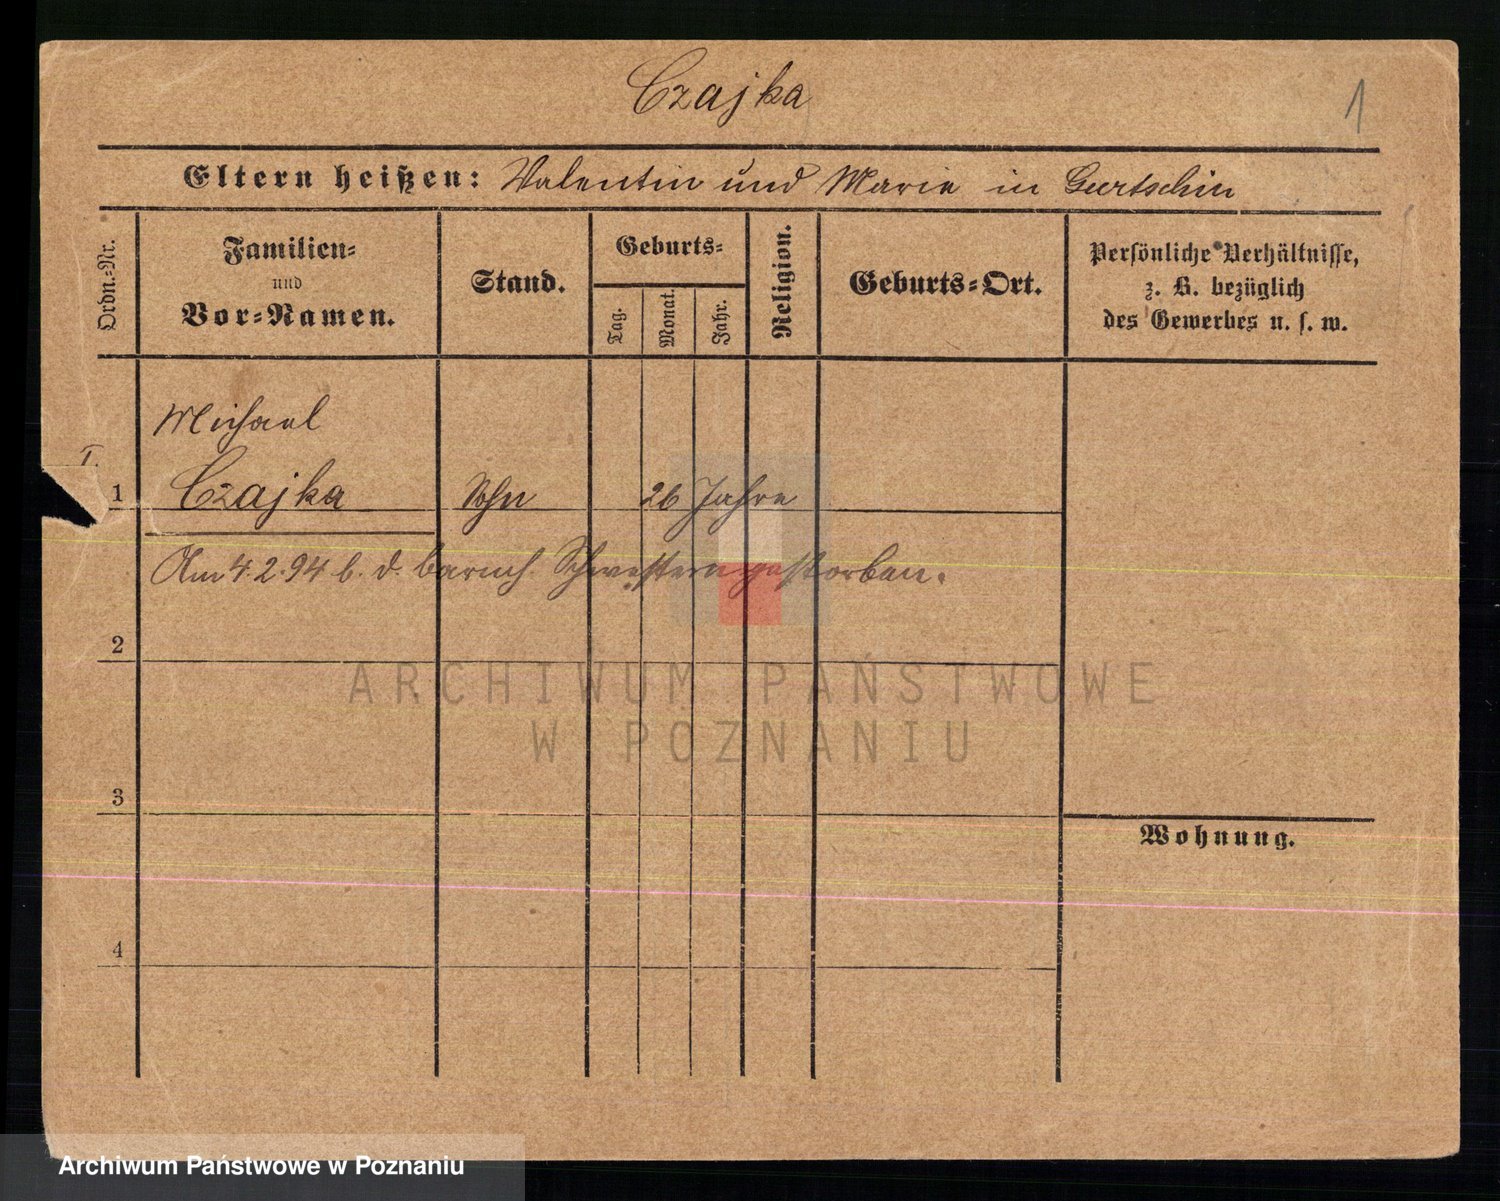 Czajka
1
Eltern heißen: Valentin und Marie in Gurtschin
Ordn.-Nr.
Familien-
und
Vor-Namen.
Stand.
Geburts-
Tag.
Monat.
Jahr.
Religion.
Geburts-Ort.
Persönliche Verhältnisse,
z. B. bezüglich
des Gewerbes u. s. w.
Michael
I.
1 Czajka Sohn 26 Jahre
Am 4.2.94 b. d. barmh. Schwestern gestorben.
2
ARCHIWUM PAŃSTWOWE
W POZNANIU
3
Wohnung.
4
Archiwum Państwowe w Poznaniu